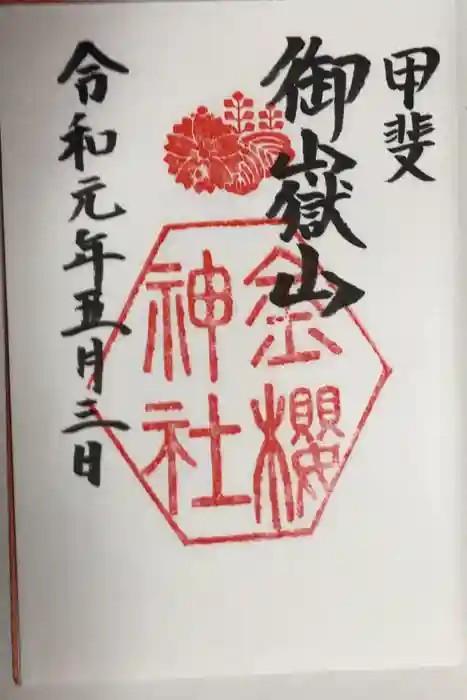 甲斐
御山嶽山
金櫻
神社
令和元年五月三日